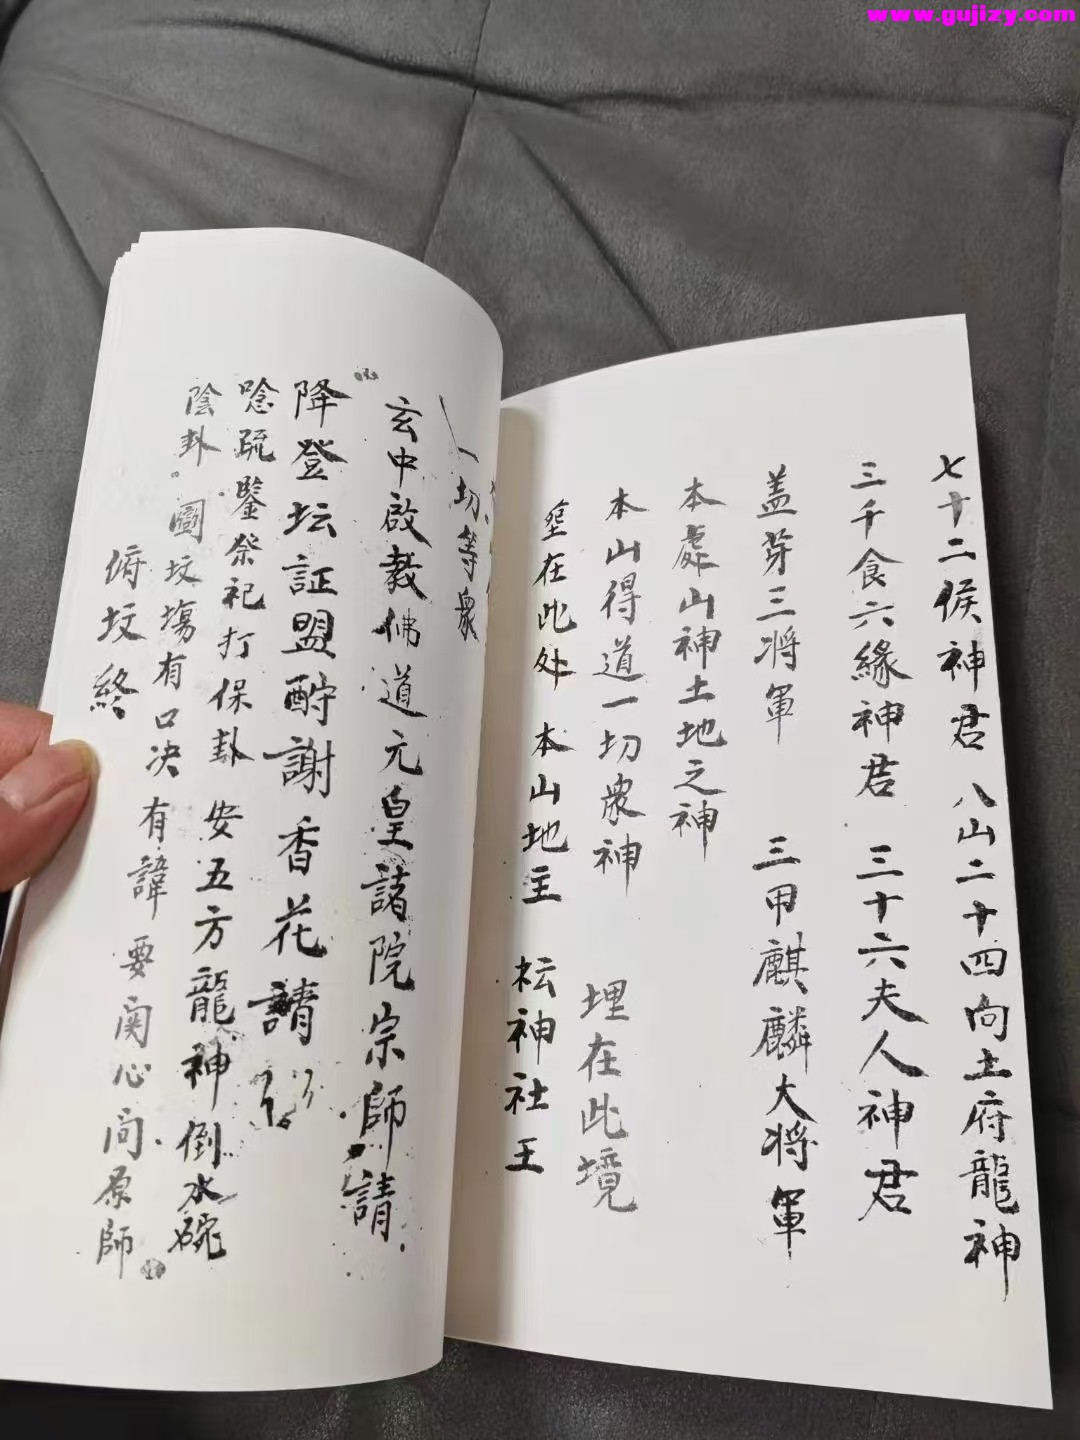 www.gujizy.com
七十二候神君 八山二十四向土府龍神
三千食六緣神君 三十六夫人神君
盖芽三将軍 三甲麒麟大将軍
本處山神土地之神
本山得道一切衆神 埋在此境
在此处 本山地主 坛神社王
一切等衆
玄中啟教佛道元皇諸院宗師請
降登坛証盟酧謝香花請
唸疏鑒祭祀打保卦 安五方龍神倒水碗
陰卦 圓坟塲有口决 有諱 要関心问原師
俯坟終